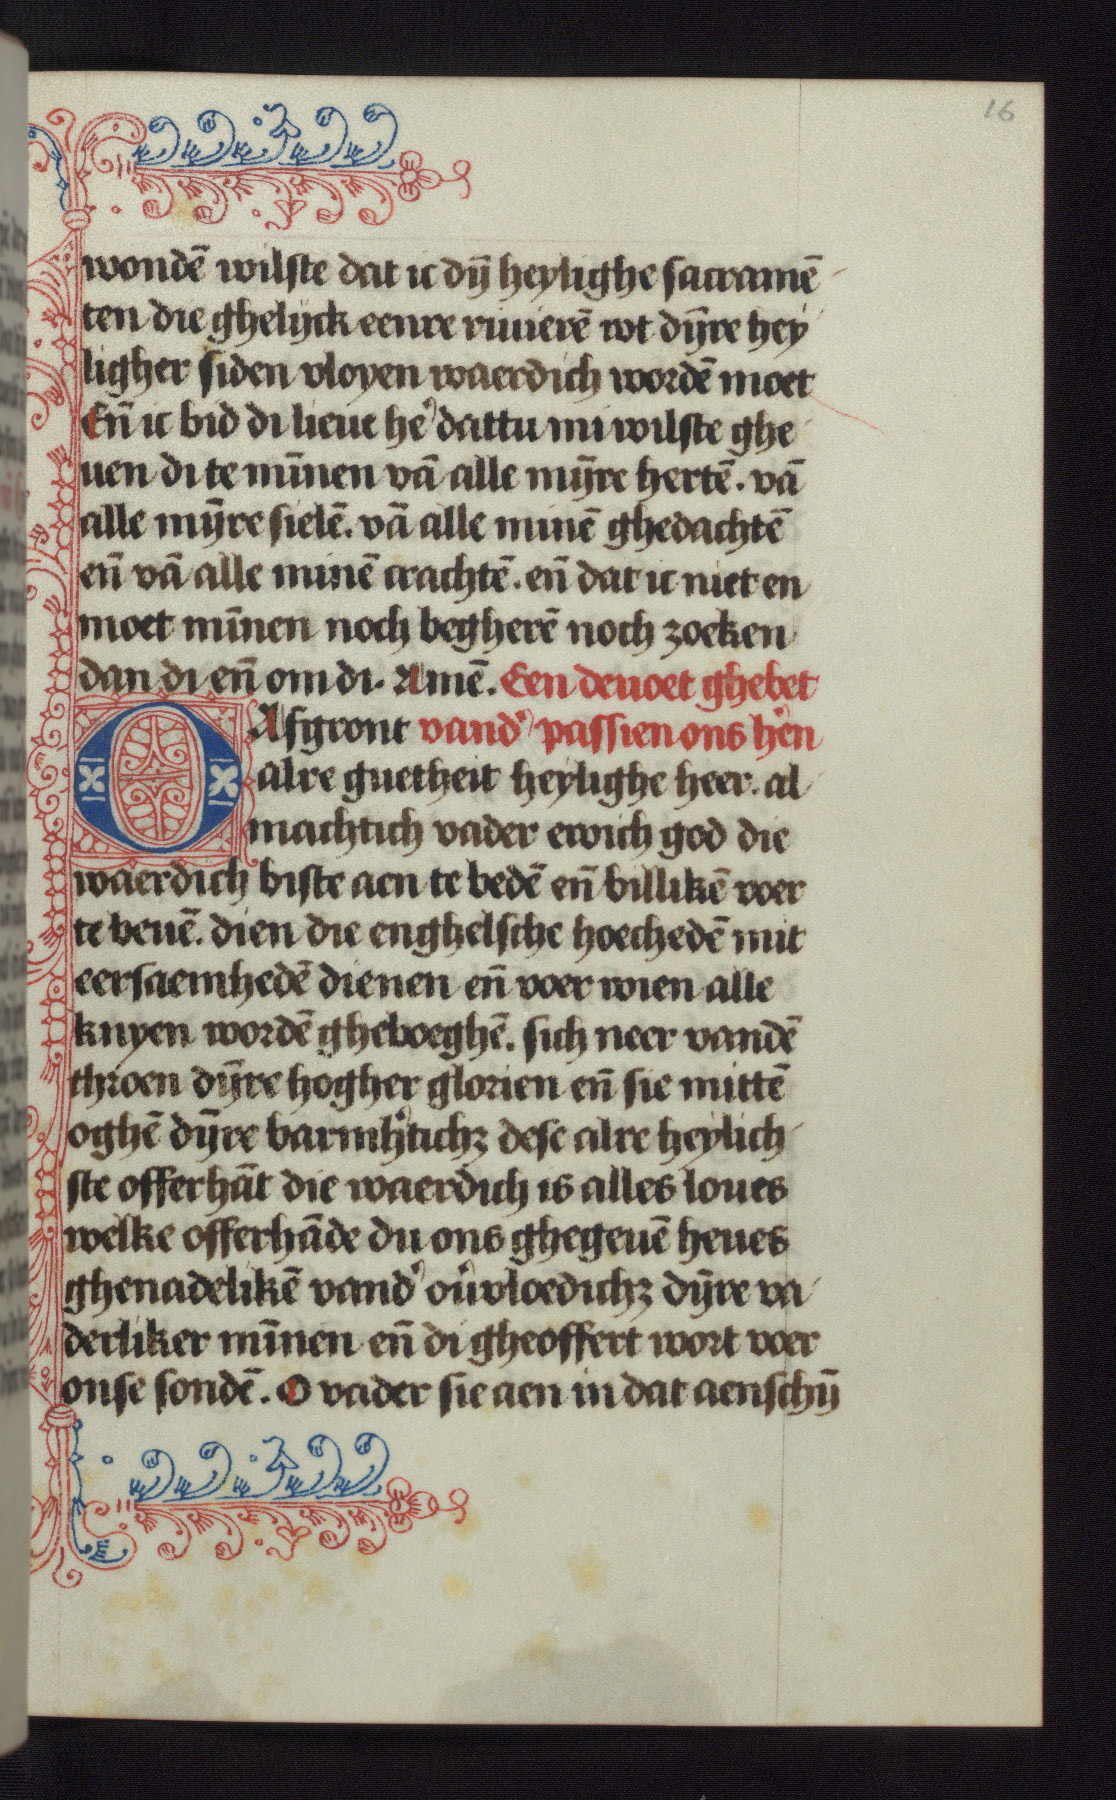 16
wondē wilste dat ic dȳ heylighe sacramē
ten die ghelijck eenre riuierē wt dȳre hey
ligher siden vloyen waerdich wordē moet
Eñ ic bid di lieue he' dattu mi wilste ghe
uen di te mīnen vā alle mȳre hertē. vā
alle mȳre sielē. vā alle minē ghedachtē
eñ vā alle minē crachtē. eñ dat ic niet en
moet mīnen noch begherē noch zoeken
dan di eñ om di. Amē. Een deuoet ghebet
O Afgront vand' passien ons h'en
alre guetheit heylighe heer. al
machtich vader ewich god die
waerdich biste aen te bedē eñ billikē voer
te beuē. dien die enghelsche hoechedē mit
eersaemhedē dienen eñ voer wien alle
knyen wordē gheboeghē. sich neer vandē
throen dȳre hogher glorien eñ sie mittē
oghē dȳre barmh'tichꝫ dese alre heylich
ste offerhāt die waerdich is alles loues
welke offerhāde du ons ghegeuē heues
ghenadelikē vand' ou'vloedichꝫ dȳre va
derliker mīnen eñ di gheoffert wort voer
onse sondē. O vader sie aen in dat aenschȳ